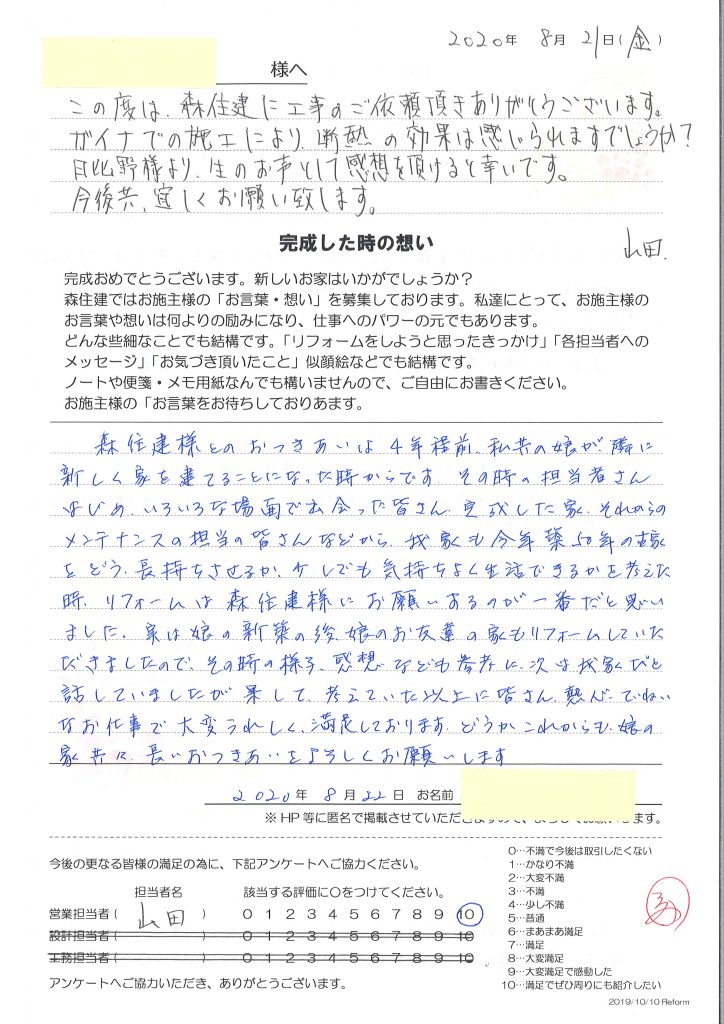 2020年 8月 21日(金)
様へ
この度は、森住建に工事のご依頼頂きありがとうございます。
ガイナでの施工により、断熱の効果は感じられますでしょうか?
日比野様より、生のお声として感想を頂けると幸いです。
今後共、宜しくお願い致します。
山田.
完成した時の想い
完成おめでとうございます。新しいお家はいかがでしょうか?
森住建ではお施主様の「お言葉・想い」を募集しております。私達にとって、お施主様の
お言葉や想いは何よりの励みになり、仕事へのパワーの元でもあります。
どんな些細なことでも結構です。「リフォームをしようと思ったきっかけ」「各担当者への
メッセージ」「お気づき頂いたこと」似顔絵などでも結構です。
ノートや便箋・メモ用紙なんでも構いませんので、ご自由にお書きください。
お施主様の「お言葉をお待ちしておりあます。
森住建様とのおつきあいは4年程前、私共の娘が、隣に
新しく家を建てることになった時からです。その時の担当者さん
はじめ、いろいろな場面で出会った皆さん、完成した家、それからの
メンテナンスの担当の皆さんなどから、我家も今年築50年の古家
をどう、長持ちさせるか、少しでも気持ちよく生活できるかを考えた
時、リフォームは森住建様にお願いするのが一番だと思い
ました。実は娘の新築の後、娘のお友達の家もリフォームしていた
だきましたので、その時の様子、感想なども参考に、次は我家だと
話していましたが 果して、考えていた以上に皆さん、熱心、ていねい
なお仕事で大変うれしく、満足しております。どうかこれからも、娘の
家共に、長いおつきあいをよろしくお願いします
2020年 8月 22日 お名前
※HP等に匿名で掲載させていただきますので、よろしくお願いします。
今後の更なる皆様の満足の為に、下記アンケートへご協力ください。
担当者名 該当する評価に○をつけてください。
営業担当者( 山田 ) 0 1 2 3 4 5 6 7 8 9 10
設計担当者( ) 0 1 2 3 4 5 6 7 8 9 10
工務担当者( ) 0 1 2 3 4 5 6 7 8 9 10
アンケートへご協力いただき、ありがとうございます。
0…不満で今後は取引したくない
1…かなり不満
2…大変不満
3…不満
4…少し不満
5…普通
6…まあまあ満足
7…満足
8…大変満足
9…大変満足で感動した
10…満足でぜひ周りにも紹介したい
2019/10/10 Reform